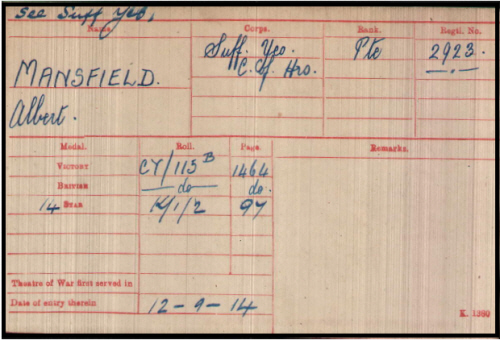 See Suff Yeo,
Name. Corps. Rank. Regtl. No.
MANSFIELD. Suff. Yeo. Pte 2923.
C. of Hrs. —.—
Albert.
Medal. Roll. Page. Remarks.
VICTORY CY/115 B 1464
BRITISH —do— do.
14 STAR K/1/2 97
Theatre of War first served in
Date of entry therein 12-9-14
K. 1380